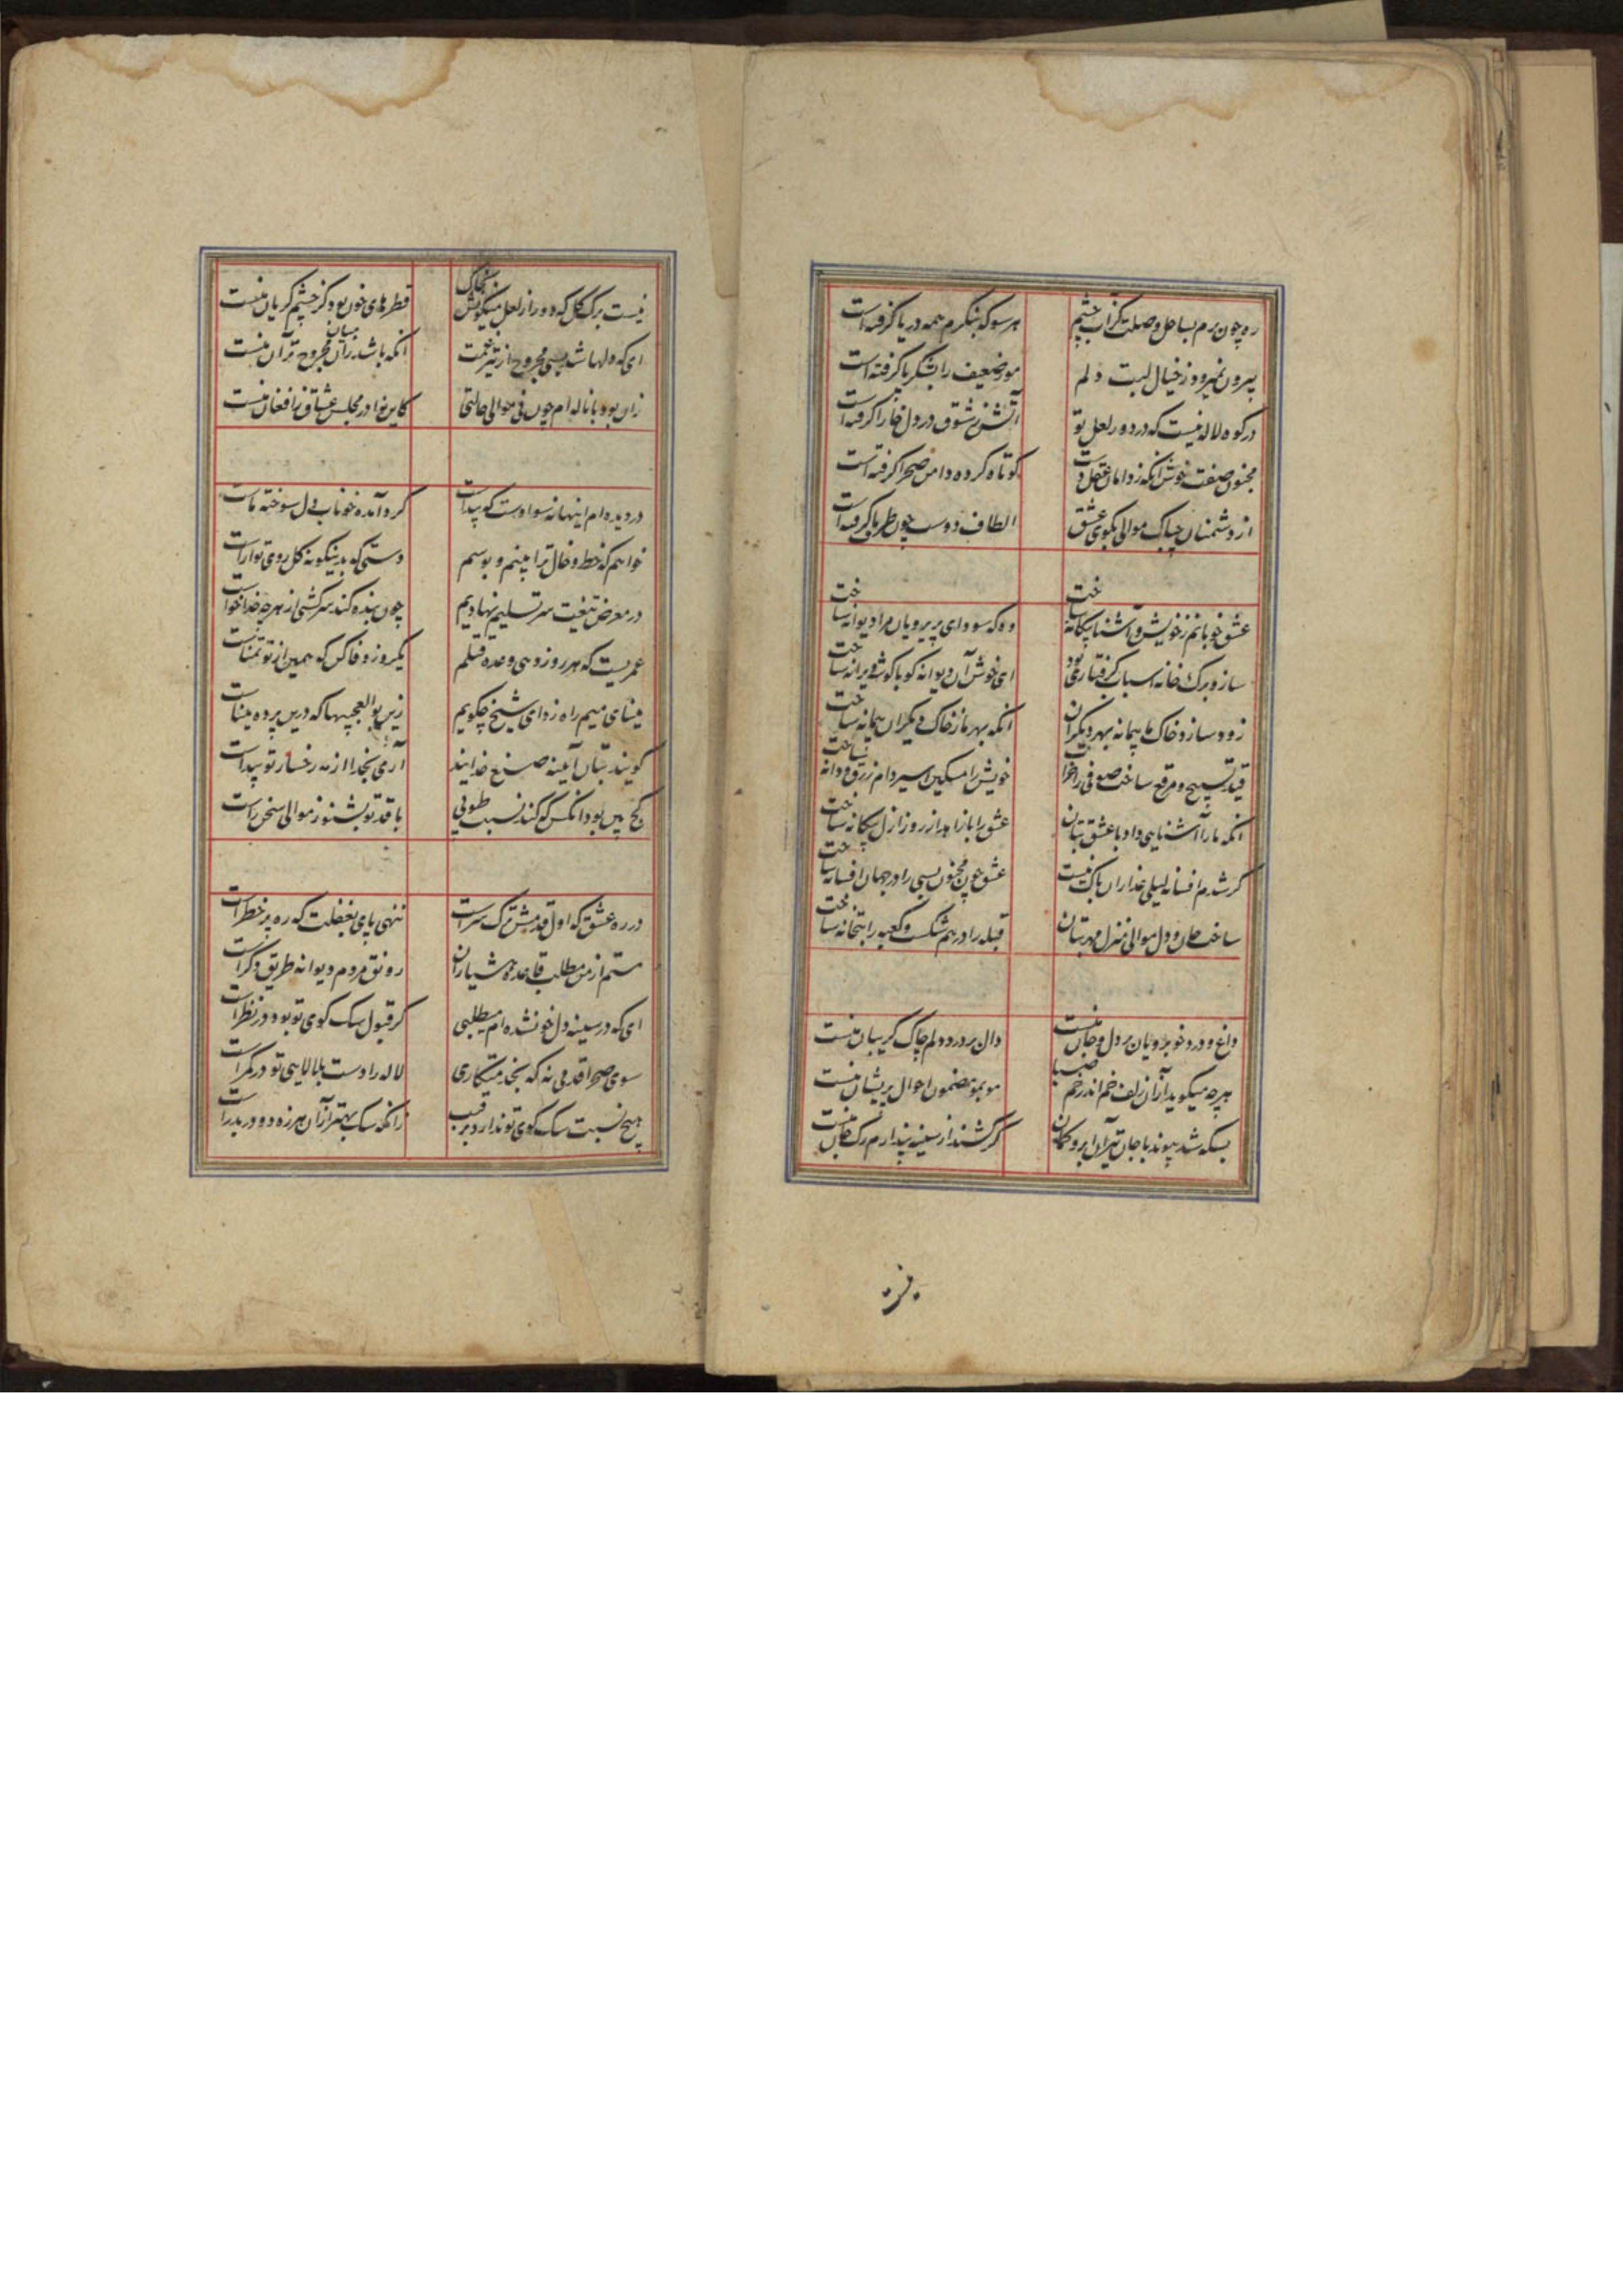 ره چون برم بساحل وصلت کز آب چشم هر سو که بنگرم همه دریا گرفته است
بیرون نمیرود ز خیال لبت دلم مور ضعیف را بشکر پا گرفته است
در کوه لاله نیست که در دور لعل تو آتش ز شوق در دل خارا گرفته است
مجنون صفت خوش آنکه ز دامان عقل دست کوتاه کرده دامن صحرا گرفته است
از دشمنان چه باک موالی بکوی عشق الطاف دوست چون طرف ما گرفته است
عشق خوبانم ز خویش و آشنا بیگانه ساخت وه که سودای پریرویان مرا دیوانه ساخت
ساز و برک خانه اسباب گرفتاری بود ای خوش آن دیوانه کو با گوشهٔ ویرانه ساخت
زود سازد خاک ما پیمانه بهر دیگران آنکه بهر ما ز خاک دیگران پیمانه ساخت
قید تسبیح و مرقع ساخت صوفی را خراب خویش را مسکین اسیر دام زرق و دانه ساخت
آنکه ما را آشنایی داد با عشق بتان عشق را با زاهد از روز ازل بیگانه ساخت
گر شدم افسانه لیلی عذاران باک نیست عشق چون مجنون بسی را در جهان افسانه ساخت
ساخت جان و دل موالی منزل مهر بتان قبله را در هم شکست و کعبه را بتخانه ساخت
داغ و درد خوبرویان بر دل و جان منست دال بر درد دلم چاک گریبان منست
هر چه میگوید از آن زلف خم اندر خم صبا مو بمو مضمون احوال پریشان منست
بسکه شد پیوند با جان تیر آن ابرو کمان گر کشند از سینه پندارم رگ جان منست
نیست برک گل که دور از لعل میگونش بخاک قطرهای خون بود کز چشم گریان منست
ای که دلها شد بسی مجروح از تیر غمت آنکه باشد زان میان مجروح تر آن منست
زان بود با ناله ام چون نی موالی حالتی کاین نوا در مجلس عشاق ز افغان منست
در دیده ام اینها نه سوادست که پیداست گرد آمده خوناب دل سوختهٔ ماست
خواهم که خط و خال ترا بینم و بوسم دستی که بدینگونه گل روی تو آراست
در معرض تیغت سر تسلیم نهادیم چون بنده کند سرکشی از هر چه خدا خواست
عمریست که هر روز دهی وعدهٔ قتلم یکروز وفا کن که همین از تو تمناست
مینای میم راه زد ای شیخ چگویم زین بوالعجبیها که درین پرده میناست
گویند بتان آیینه صنع خدایند آری بخدا از مه رخسار تو پیداست
کج بین بود آنکس که کند نسبت طوبی با قد تو بشنو ز موالی سخن راست
در ره عشق که اول قدمش ترک سرست ننهی پای بغفلت که ره پر خطرست
مستم از من مطلب قاعدهٔ هشیاران رونق مردم دیوانه طریق دگرست
ای که در سینه دل خون شده ام میطلبی گر قبول سک کوی تو بود در نظرست
سوی صحرا قدمی نه که بخدمتکاری لاله را دست ببالایی تو در کمرست
هیچ نسبت بسک کوی تو ندارد رقیب زانکه سک بهتر از آن هرزه دو در بدرست